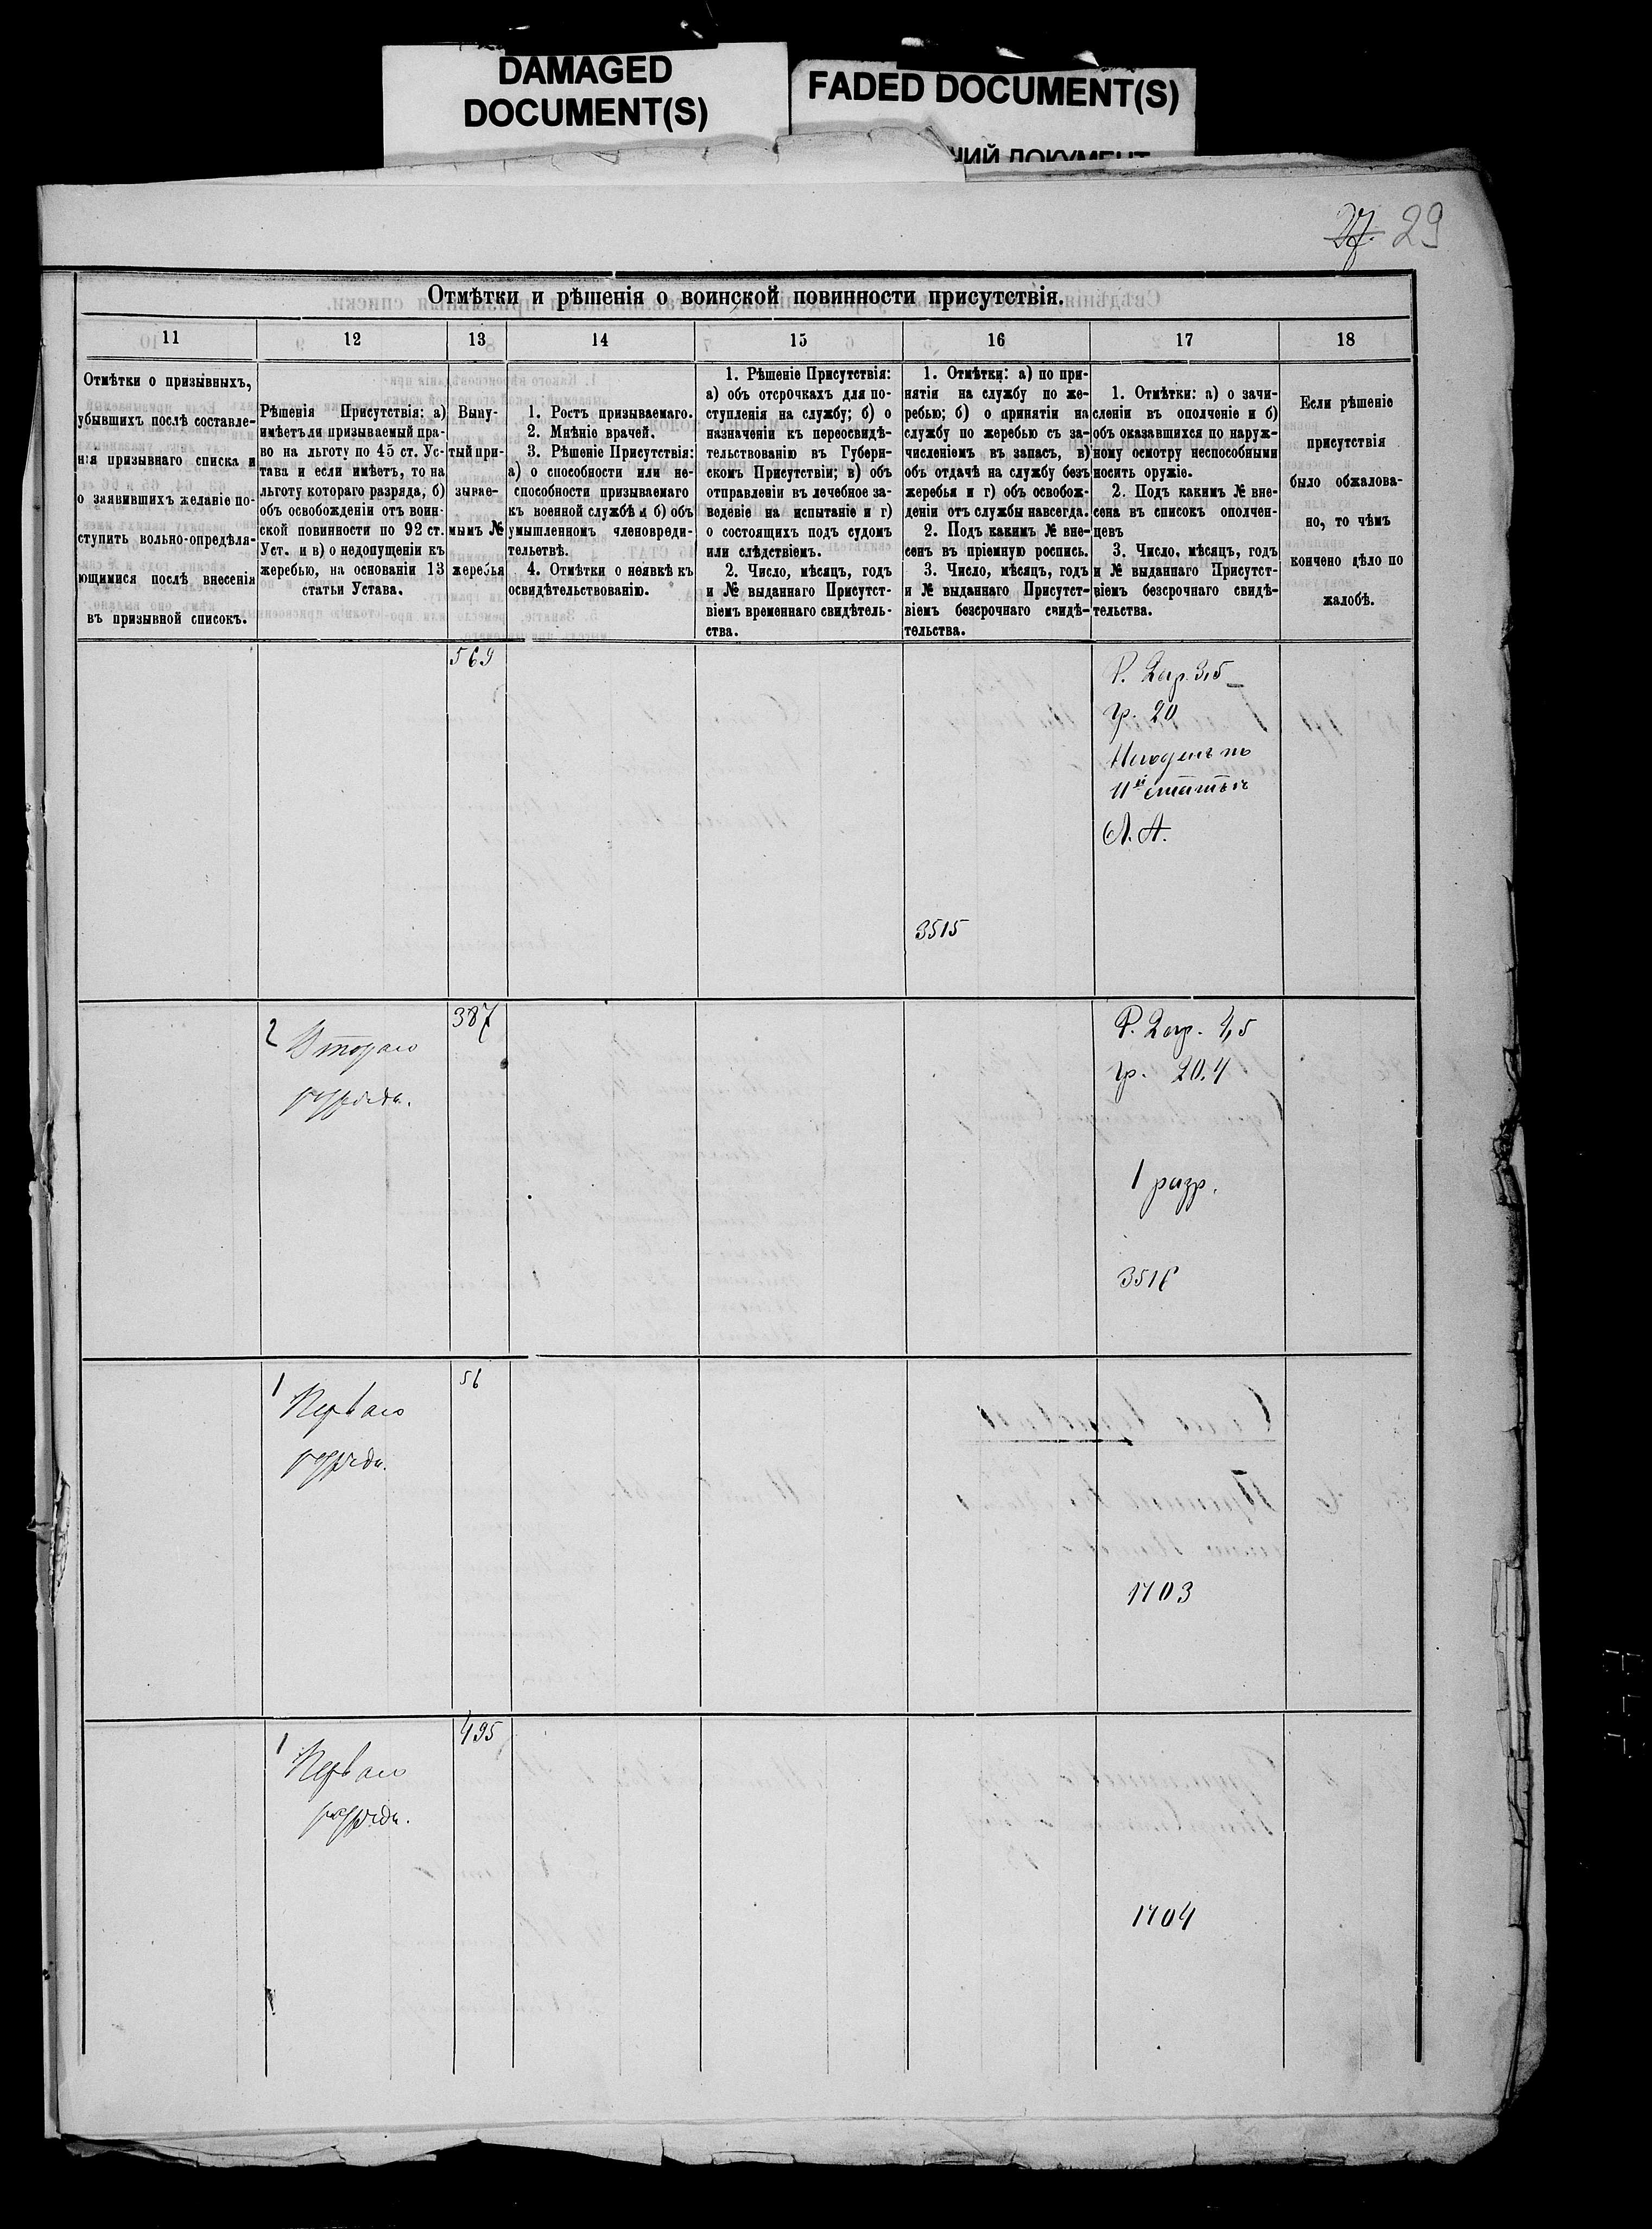 DAMAGED
DOCUMENT(S)
FADED DOCUMENT(S)
27. 29
Отмѣтки и рѣшенія о воинской повинности присутствія.
11 12 13 14 15 16 17 18
Отмѣтки о призывныхъ,
убывшихъ послѣ составле-
нія призывнаго списка и
о заявившихъ желаніе по-
ступить вольно-опредѣля-
ющимися послѣ внесенія
въ призывной списокъ.
Рѣшенія Присутствія: а)
имѣетъ ли призываемый пра-
во на льготу по 45 ст. Ус-
тава и если имѣетъ, то на
льготу котораго разряда, б)
объ освобожденіи отъ воин-
ской повинности по 92 ст.
Уст. и в) о недопущеніи къ
жеребью, на основаніи 13
статьи Устава.
Выну-
тый при-
зывае-
мымъ №
жеребья
1. Ростъ призываемаго.
2. Мнѣніе врачей.
3. Рѣшеніе Присутствія:
а) о способности или не-
способности призываемаго
къ военной службѣ и б) объ
умышленномъ членовреди-
тельствѣ.
4. Отмѣтки о неявкѣ къ
освидѣтельствованію.
1. Рѣшеніе Присутствія:
а) объ отсрочкахъ для по-
ступленія на службу; б) о
назначеніи къ переосвидѣ-
тельствованію въ Губерн-
скомъ Присутствіи; в) объ
отправленіи въ лечебное за-
веденіе на испытаніе и г)
о состоящихъ подъ судомъ
или слѣдствіемъ.
2. Число, мѣсяцъ, годъ
и № выданнаго Присутст-
віемъ временнаго свидѣтель-
ства.
1. Отмѣтки: а) по при-
нятіи на службу по же-
ребью; б) о принятіи на
службу по жеребью съ за-
численіемъ въ запасъ, в)
объ отдачѣ на службу безъ
жеребья и г) объ освобож-
деніи отъ службы навсегда.
2. Подъ какимъ № вне-
сенъ въ пріемную роспись.
3. Число, мѣсяцъ, годъ
и № выданнаго Присутст-
віемъ безсрочнаго свидѣ-
тельства.
1. Отмѣтки: а) о зачи-
сленіи въ ополченіе и б)
объ оказавшихся по наруж-
ному осмотру неспособными
носить оружіе.
2. Подъ какимъ № вне-
сена въ списокъ ополчен-
цевъ
3. Число, мѣсяцъ, годъ
и № выданнаго Присутст-
віемъ безсрочнаго свидѣ-
тельства.
Если рѣшеніе
присутствія
было обжалова-
но, то чѣмъ
кончено дѣло по
жалобѣ.
569
Р. 2 ар. 3,5
гр. 20
Негоденъ по
11й статьѣ
Л. А.
3515
2 Втораго
разряда.
387
Р. 2 ар. 4,5
гр. 20.4
1 разр.
3516
1 Перваго
разряда.
56
1703
1 Перваго
разряда.
495
1704